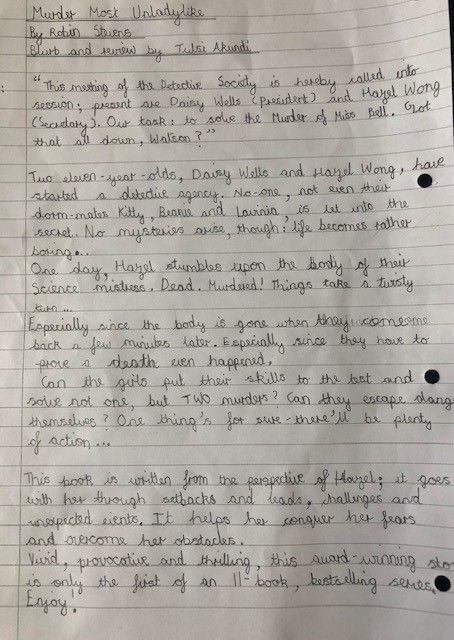 Murder Most Unladylike
By Robin Stevens
Blurb and review by Tulsi Akundi
"This meeting of the Detective Society is hereby called into
session; present are Daisy Wells (President) and Hazel Wong
(Secretary). Our task: to solve the Murder of Miss Bell. Got
that all down, Watson?"
Two eleven-year-olds, Daisy Wells and Hazel Wong, have
started a detective agency. No-one, not even their
dorm-mates Kitty, Beanie and Lavinia, is let into the
secret. No mysteries arise, though: life becomes rather
boring...
One day, Hazel stumbles upon the body of their
Science mistress. Dead. Murdered! Things take a twisty
turn...
Especially since the body is gone when they come
back a few minutes later. Especially since they have to
prove a death even happened.
Can the girls put their skills to the test and
solve not one, but TWO murders? Can they escape dang
themselves? One thing's for sure - there'll be plenty
of action...
This book is written from the perspective of Hazel; it goes
with her through setbacks and leads, challenges and
unexpected events. It helps her conquer her fears
and overcome her obstacles.
Vivid, provocative and thrilling, this award-winning sto
is only the first of an 11-book, bestselling series.
Enjoy!